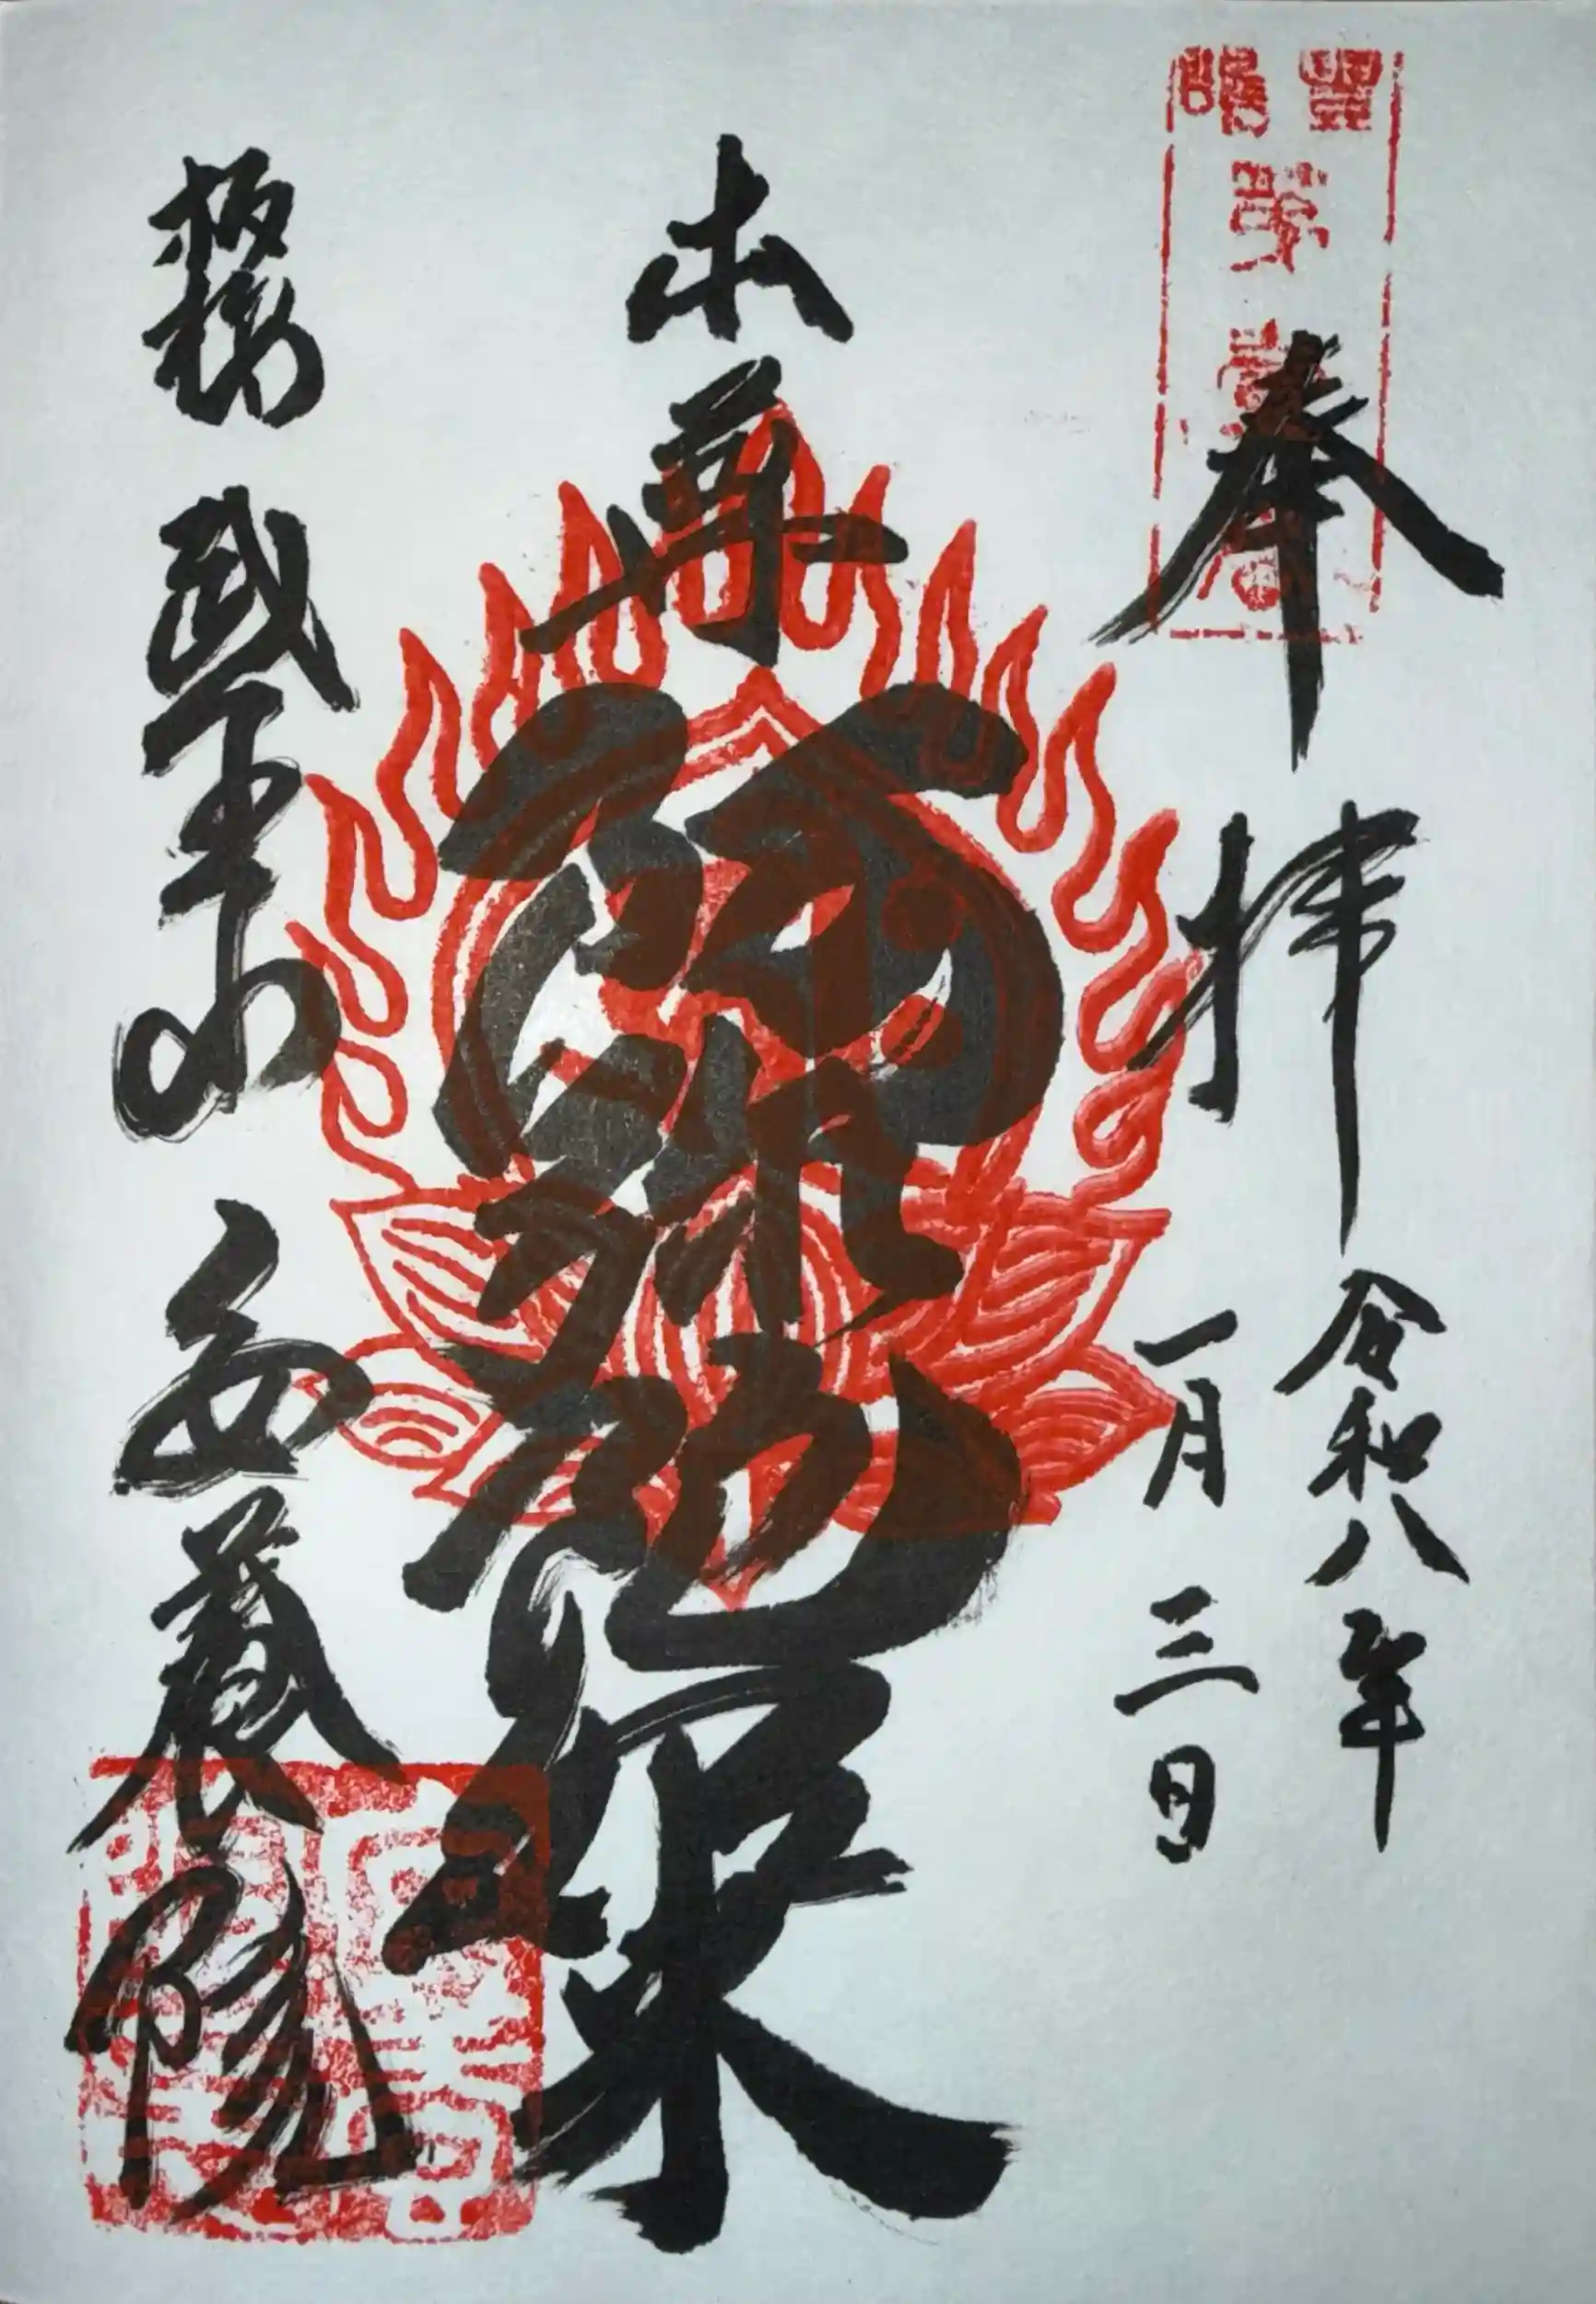 奉拝
令和八年
一月三日
本尊
阿弥陀如来
板橋 武王山 安養院